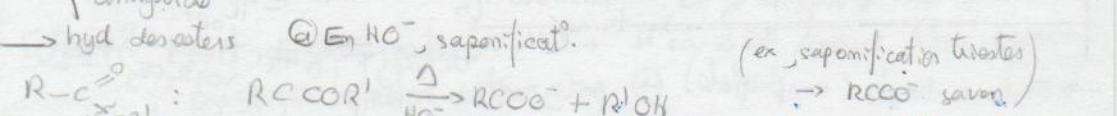 → hyd des esters ⓐ En HO⁻, saponificat°. (ex, saponification triester
R-C=O : RCOOR' Δ→ RCOO⁻ + R'OH → RCOO⁻ savon)
HO⁻